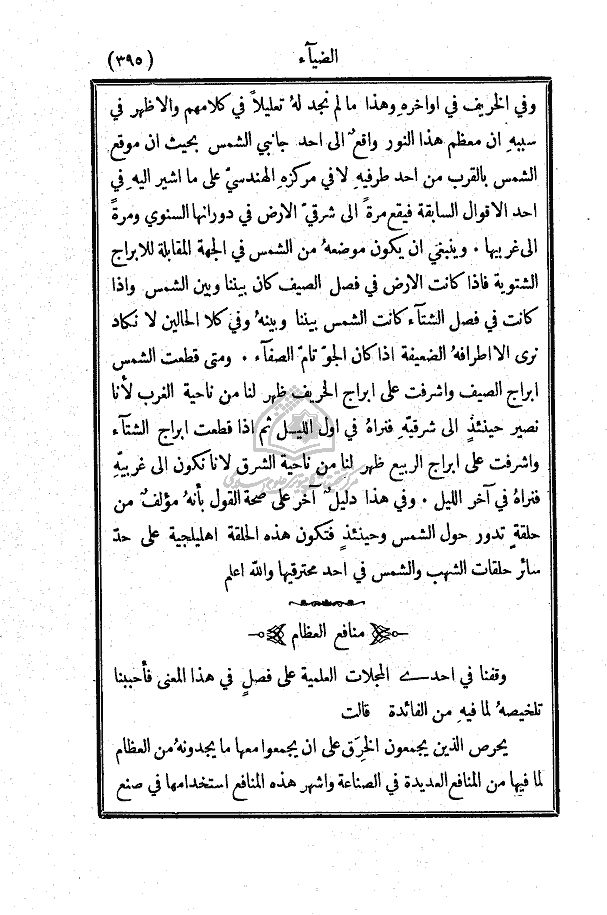 الضيآء
(٣٩٥)
وفي الخريف في اواخرهِ وهذا ما لم نجد لهُ تعليلاً في كلامهم والاظهر في
سببهِ ان معظم هذا النور واقعٌ الى احد جانبي الشمس بحيث ان موقع
الشمس بالقرب من احد طرفيهِ لا في مركزهِ الهندسيّ على ما اشير اليهِ في
احد الاقوال السابقة فيقع مرةً الى شرقيّ الارض في دورانها السنوي ومرةً
الى غربيها . وينبغي ان يكون موضعهُ من الشمس في الجهة المقابلة للابراج
الشتوية فاذا كانت الارض في فصل الصيف كان بيننا وبين الشمس واذا
كانت في فصل الشتآء كانت الشمس بيننا وبينهُ وفي كلا الحالين لا نكاد
نرى الا اطرافهُ الضعيفة اذا كان الجوّ تامّ الصفآء . ومتى قطعت الشمس
ابراج الصيف واشرفت على ابراج الخريف ظهر لنا من ناحية الغرب لأنا
نصير حينئذٍ الى شرقيّهِ فنراهُ في اول الليل ثم اذا قطعت ابراج الشتآء
واشرفت على ابراج الربيع ظهر لنا من ناحية الشرق لانا نكون الى غربيّهِ
فنراهُ في آخر الليل . وفي هذا دليلٌ آخر على صحة القول بأنهُ مؤلفٌ من
حلقةٍ تدور حول الشمس وحينئذٍ فتكون هذه الحلقة اهليلجية على حدّ
سائر حلقات الشهب والشمس في احد محترقيها والله اعلم
منافع العظام
وقفنا في احدى المجلات العلمية على فصلٍ في هذا المعنى فأحببنا
تلخيصهُ لما فيهِ من الفائدة قالت
يحرص الذين يجمعون الخِرَق على ان يجمعوا معها ما يجدونهُ من العظام
لما فيها من المنافع العديدة في الصناعة واشهر هذه المنافع استخدامها في صنع